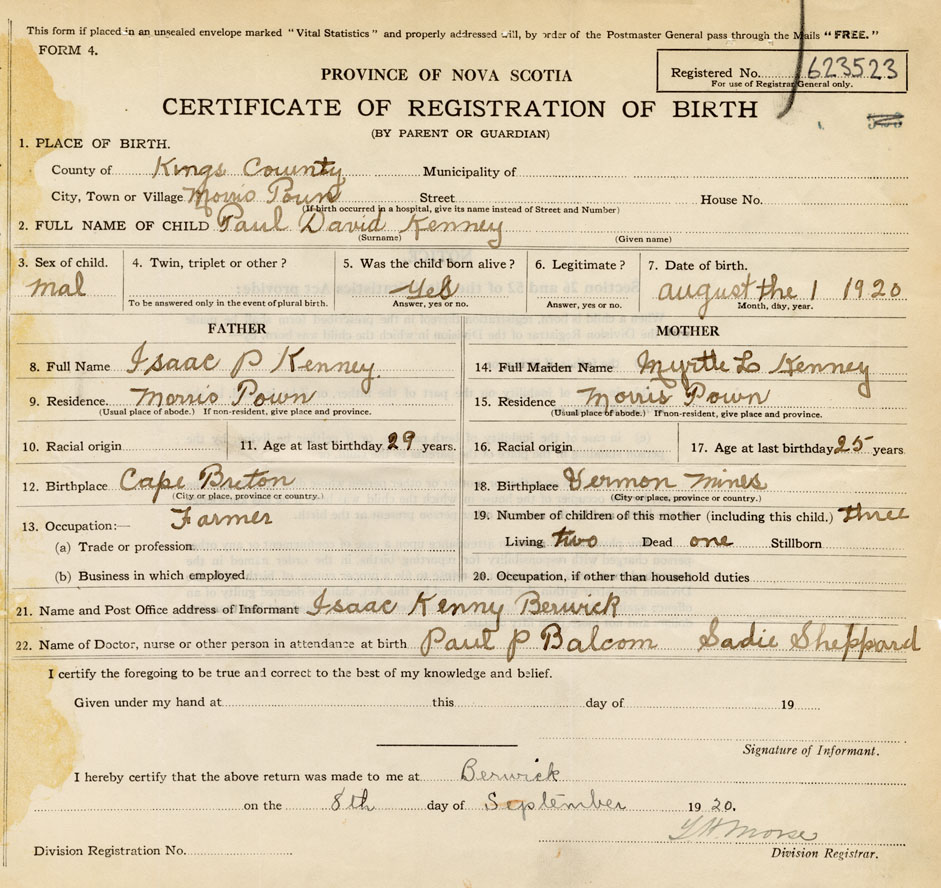 This form if placed in an unsealed envelope marked "Vital Statistics" and properly addressed will, by order of the Postmaster General pass through the Mails "FREE."
FORM 4.
PROVINCE OF NOVA SCOTIA
Registered No. 623523
For use of Registrar General only.
CERTIFICATE OF REGISTRATION OF BIRTH
(BY PARENT OR GUARDIAN)
1. PLACE OF BIRTH.
County of Kings County Municipality of
City, Town or Village Morris Pown Street House No.
(If birth occurred in a hospital, give its name instead of Street and Number)
2. FULL NAME OF CHILD Paul David Kenney
(Surname) (Given name)
3. Sex of child. 4. Twin, triplet or other? 5. Was the child born alive? 6. Legitimate? 7. Date of birth.
Mal Yes august the 1 1920
To be answered only in the event of plural birth. Answer, yes or no. Answer, yes or no. Month, day, year.
FATHER MOTHER
8. Full Name Isaac P Kenney 14. Full Maiden Name Myrtle L Kenney
9. Residence. Morris Pown 15. Residence Morris Pown
(Usual place of abode.) If non-resident, give place and province. (Usual place of abode.) If non-resident, give place and province.
10. Racial origin 11. Age at last birthday 29 years. 16. Racial origin 17. Age at last birthday 25 years
12. Birthplace Cape Breton 18. Birthplace Vermon mines
(City or place, province or country.) (City or place, province or country.)
13. Occupation:— Farmer 19. Number of children of this mother (including this child.) three
(a) Trade or profession Living two Dead one Stillborn
(b) Business in which employed 20. Occupation, if other than household duties
21. Name and Post Office address of Informant Isaac Kenny Berwick
22. Name of Doctor, nurse or other person in attendance at birth Paul P Balcom Sadie Sheppard
I certify the foregoing to be true and correct to the best of my knowledge and belief.
Given under my hand at this day of 19
Signature of Informant.
I hereby certify that the above return was made to me at Berwick
on the 8th day of September 1920.
Morse
Division Registration No. Division Registrar.